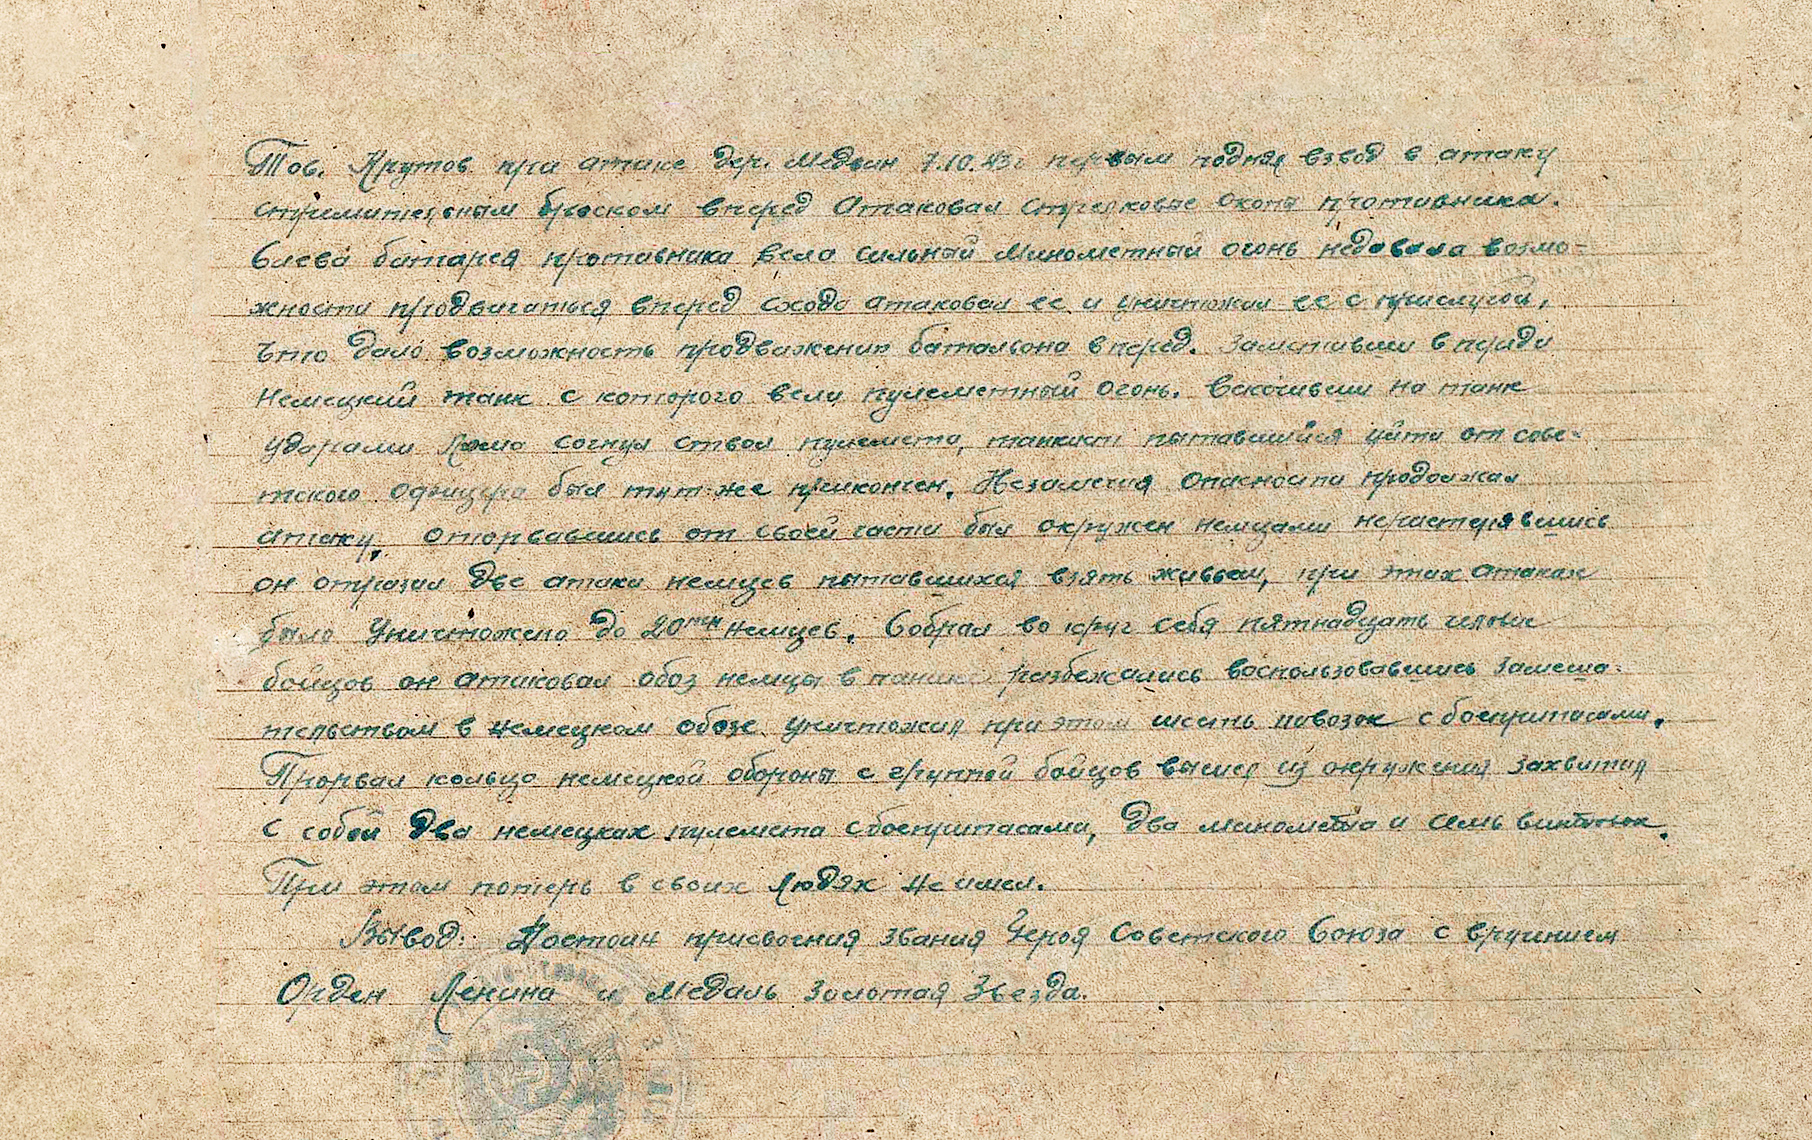 Тов. Крутов при атаке дер. Медвин 7.10.43г первым поднял взвод в атаку
стримительным броском вперед атаковал стрелковые окопы противника.
Слева батарея противника вела сильный минометный огонь недавала возмо-
жности продвигаться вперед сходу атаковал ее и уничтожил ее с прислугой,
что дало возможность продвижению батальона вперед. Заметивши впереди
немецкий танк с которого вели пулеметный огонь. Вскочивши на танк
ударами лома согнул ствол пулемета, танкист пытавшийся уйти от сове-
тского офицера был тут-же прикончен. Незамечая опасности продолжал
атаку, оторвавшись от своей части был окружен немцами нерастерявшись
он отразил две атаки немцев пытавшихся взять живьем, при этих атаках
было уничтожено до 20ти немцев. Собрал во круг себя пятнадцать человек
бойцов он атаковал обоз немцы в панике разбежались воспользовавшись замеша-
тельством в немецком обозе уничтожил при этом шесть повозок с боеприпасами.
Прорвал кольцо немецкой обороны с группой бойцов вышел из окружения захватил
с собой два немецких пулемета с боеприпасами, два миномета и семь винтовок.
При этом потерь в своих людях не имел.
Вывод: Достоин присвоения звания Героя Советского Союза с вручением
Орден Ленина и медаль Золотая Звезда.